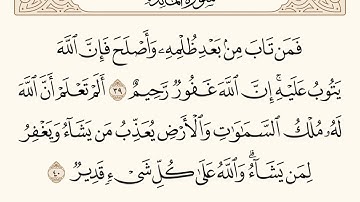 سورة المائدة
فَمَن تَابَ مِنۢ بَعْدِ ظُلْمِهِۦ وَأَصْلَحَ فَإِنَّ ٱللَّهَ
يَتُوبُ عَلَيْهِ ۗ إِنَّ ٱللَّهَ غَفُورٌ رَّحِيمٌ ٣٩ أَلَمْ تَعْلَمْ أَنَّ ٱللَّهَ
لَهُۥ مُلْكُ ٱلسَّمَٰوَٰتِ وَٱلْأَرْضِ يُعَذِّبُ مَن يَشَآءُ وَيَغْفِرُ
لِمَن يَشَآءُ ۗ وَٱللَّهُ عَلَىٰ كُلِّ شَىْءٍ قَدِيرٌ ٤٠